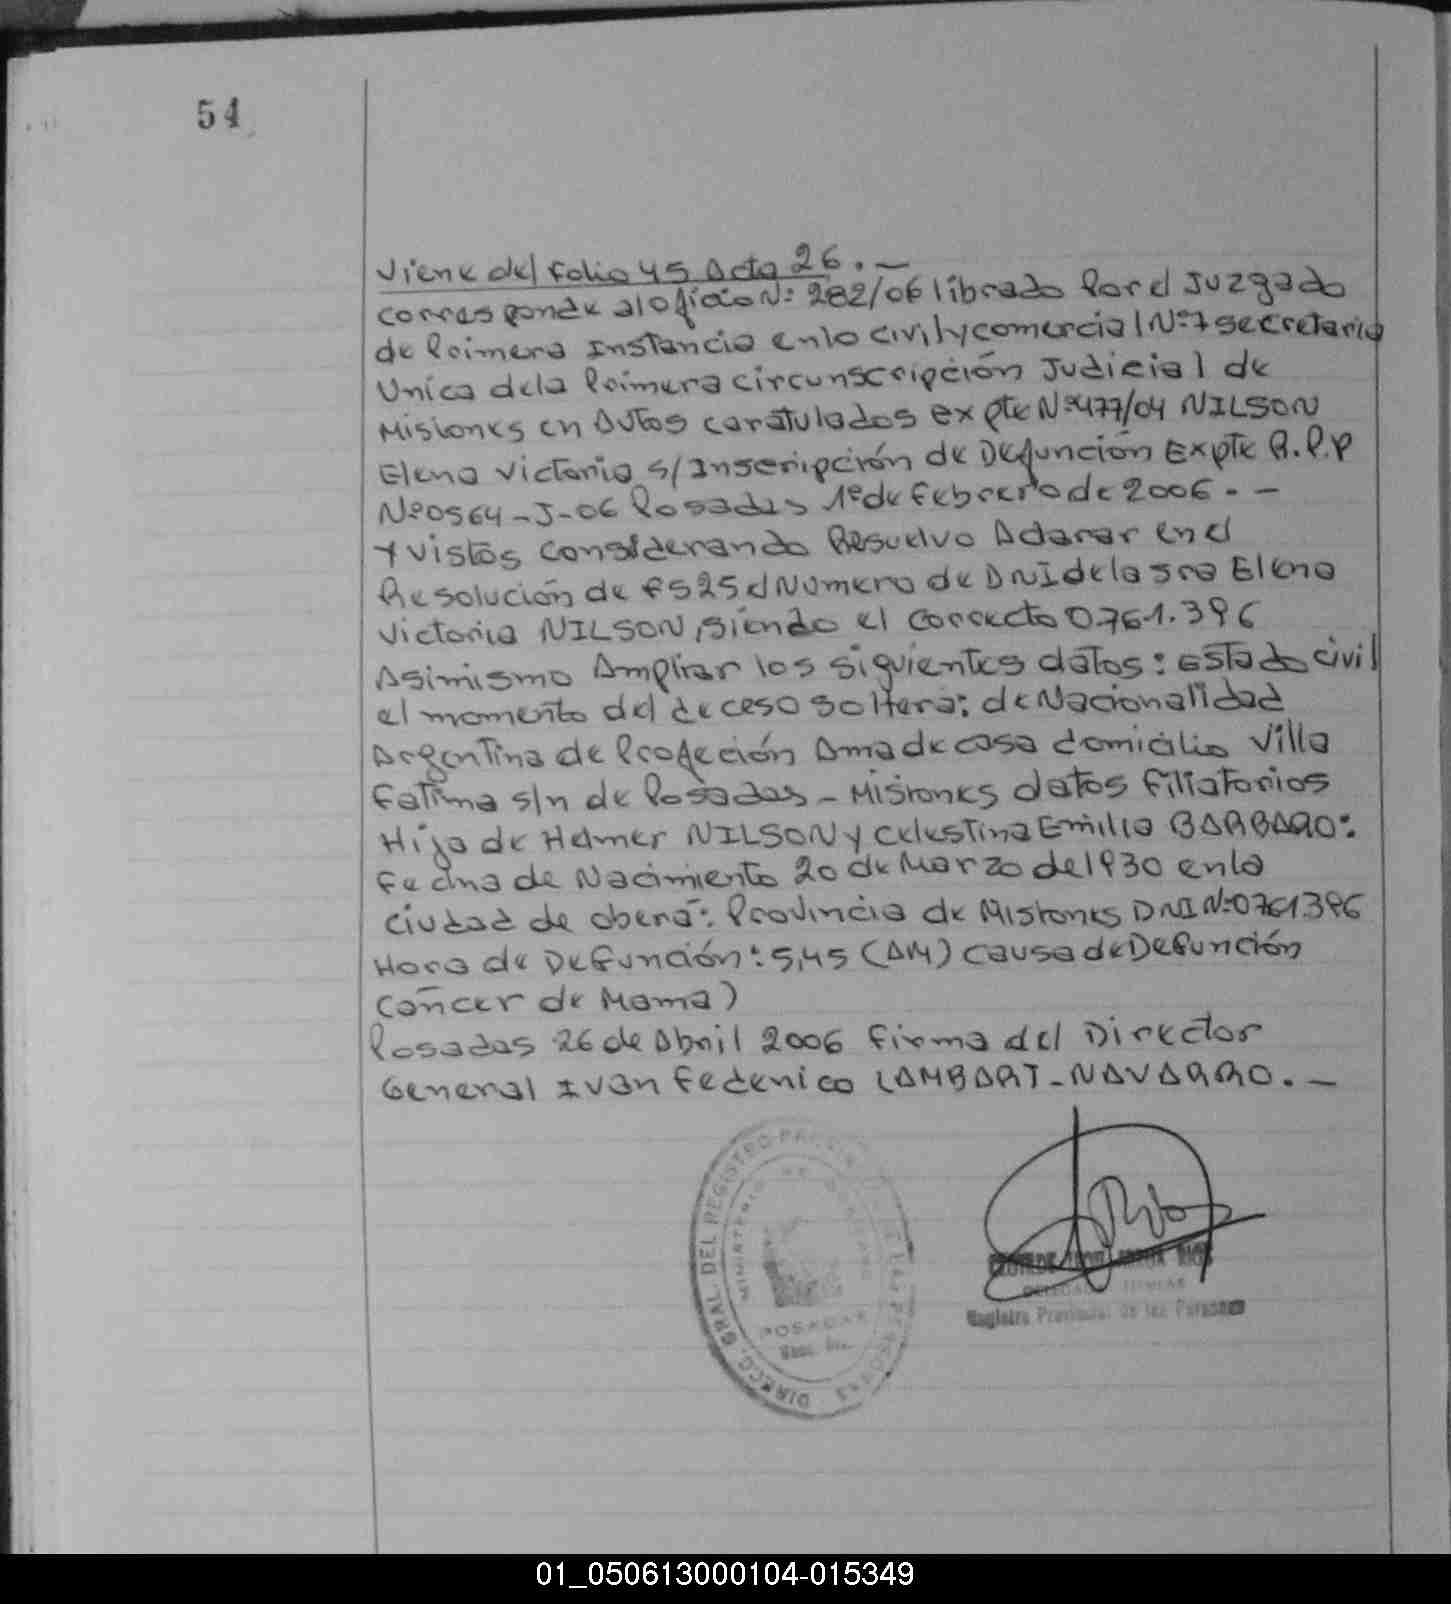 54
Viene del folio 45 Acta 26. —
corresponde al oficio N: 282/06 librado Por el Juzgado
de Primera Instancia en lo civil y comercial Nº 7 secretaria
Unica de la Primera circunscripción Judicial de
Misiones en Autos caratulados expte Nº 477/04 NILSON
Elena Victoria s/Inscripción de Defunción Expte R.P.P
Nº 0564-J-06 Posadas 1º de Febrero de 2006. —
Y vistos Considerando Resuelvo Aclarar en el
Resolución de fs 25 el Numero de DNI de la sra Elena
Victoria NILSON, siendo el Correcto 0.761.396
Asimismo Ampliar los siguientes datos: Estado civil
al momento del deceso soltera: de Nacionalidad
Argentina de Profeción Ama de casa domicilio Villa
Fatima s/n de Posadas - Misiones datos filiatorios
Hija de Helmer NILSON y Celestina Emilia BARBARO:
Fecha de Nacimiento 20 de Marzo de 1930 en la
Ciudad de obera: Provincia de Misiones DNI N: 0761.396
Hora de Defunción: 5,45 (AM) Causa de Defunción
Cancer de Mama)
Posadas 26 de Abril 2006 Firma del Director
General Ivan Federico LAMBART-NAVARRO. —
DIRECC. GRAL. DEL REGISTRO
MINISTERIO DE
POSADAS
RIOS
Registro Provincial de las Personas
01_050613000104-015349